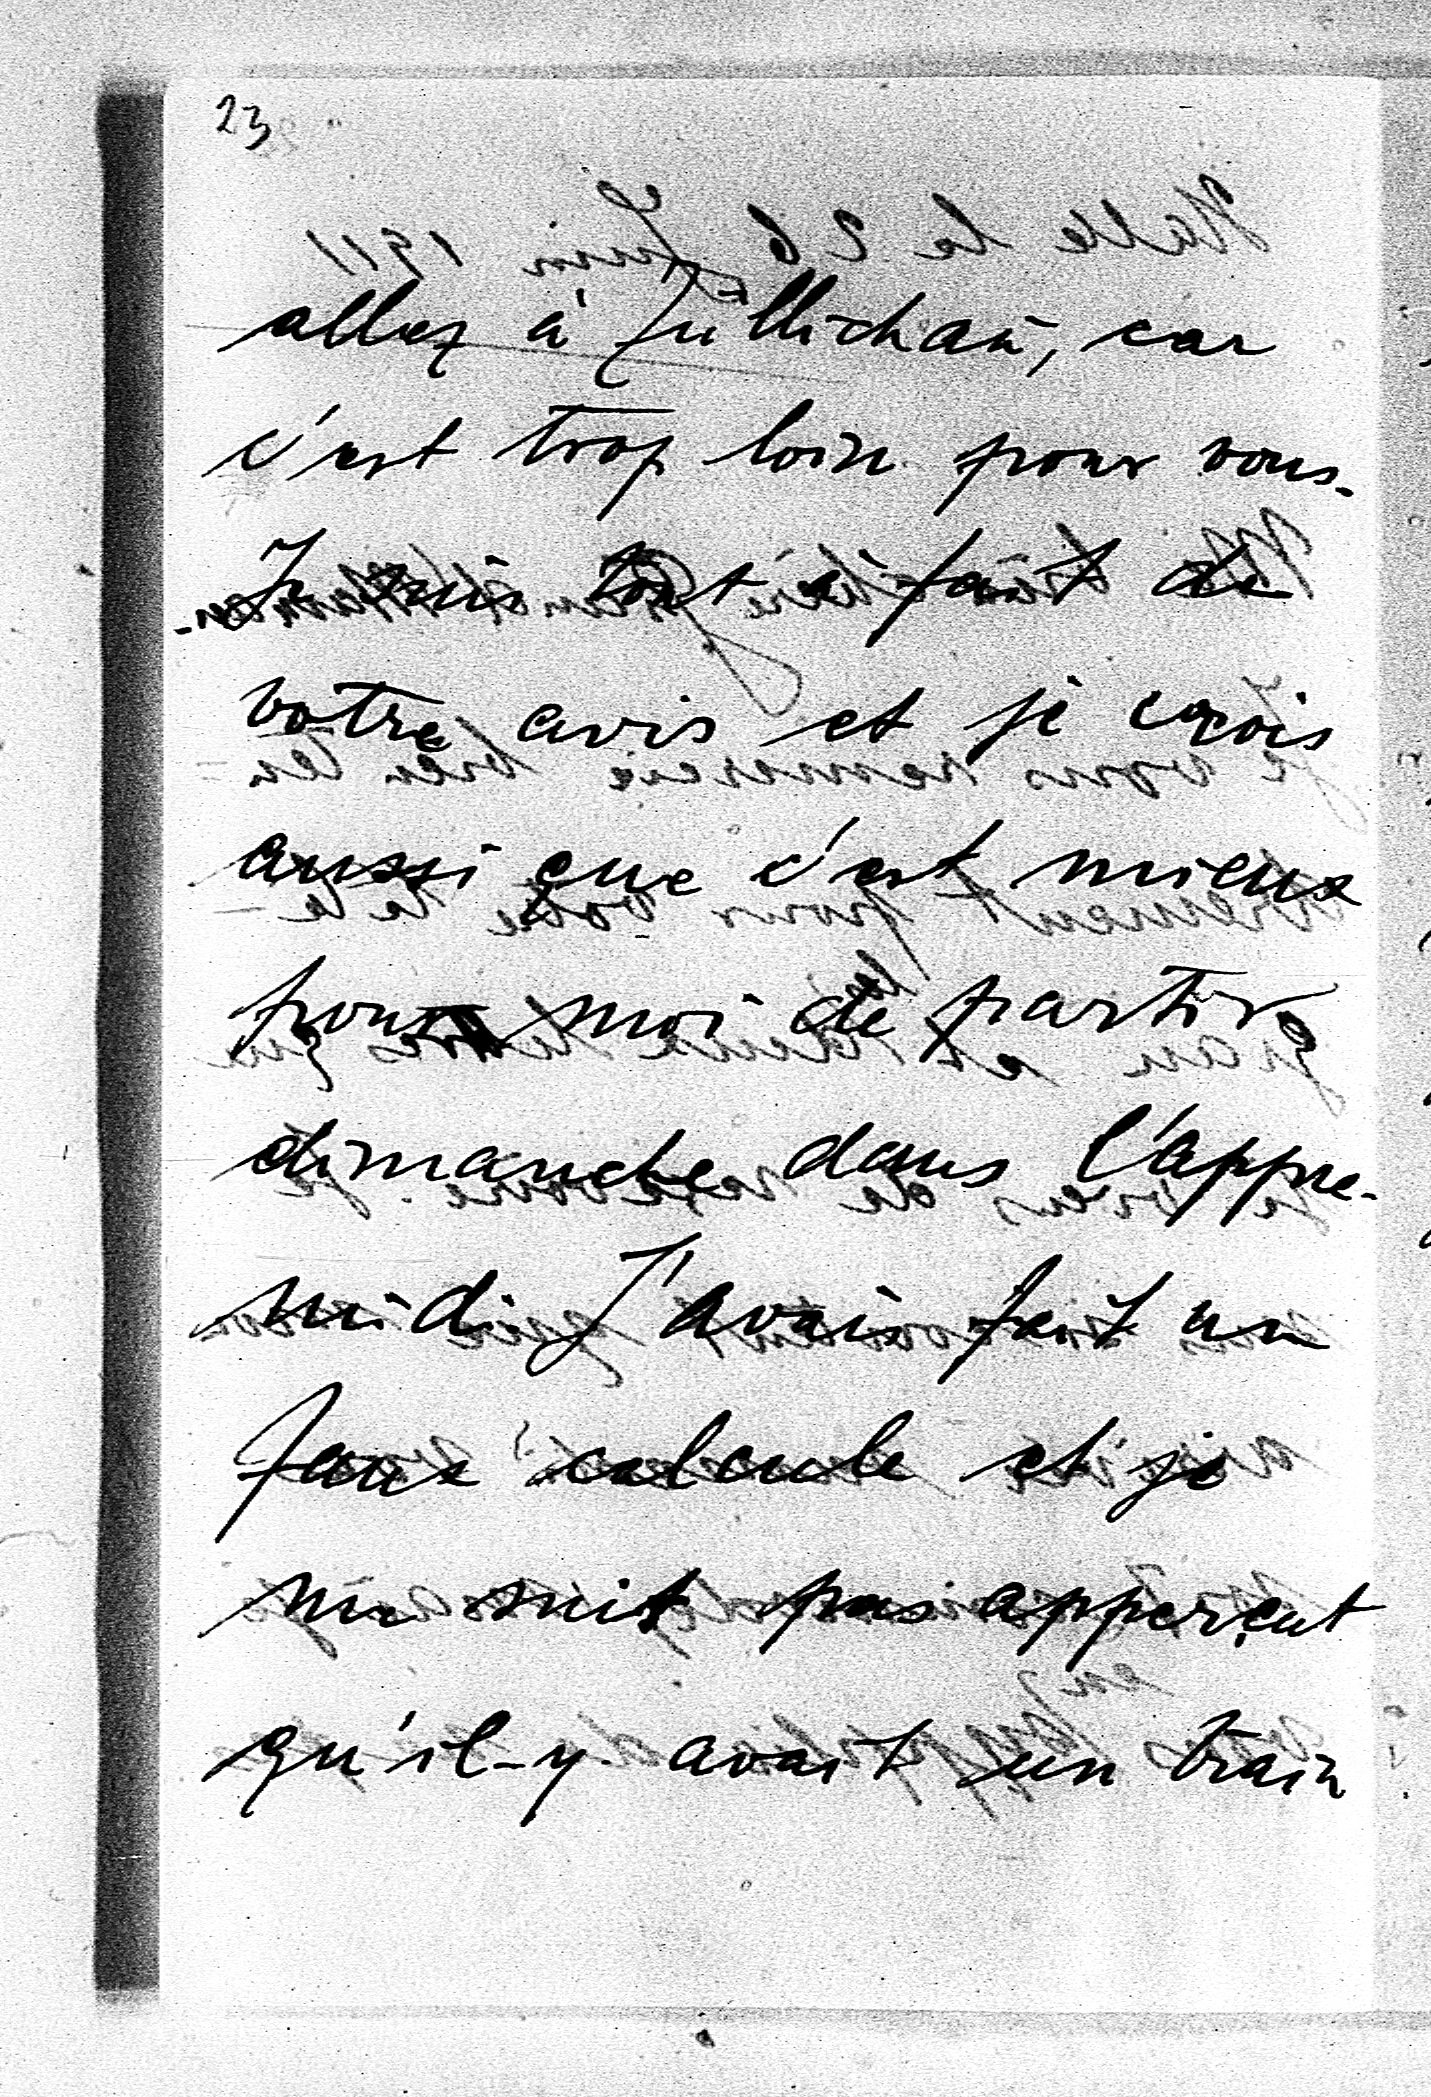 23
allez à Züllichau, car
c'est trop loin pour vous.
Je suis tout à fait de
votre avis et je crois
aussi que c'est mieux
pour moi de partir
dimanche dans l'appre-
midi. J'avais fait un
faux calcule et je
me suit pas apperçut
qu'il-y avait un train